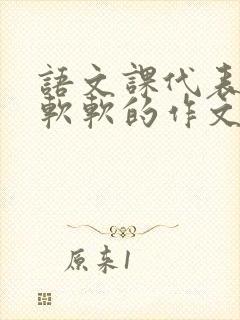 語文課代表
軟軟的作文
原来1